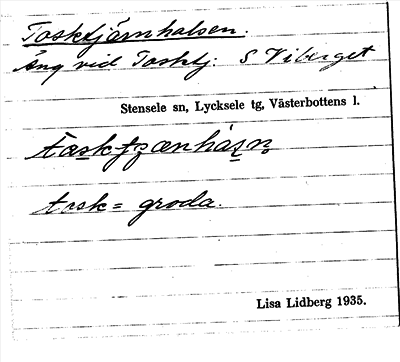 Tosktjärnhalsen.
Äng vid Tosktj: S Viberget
Stensele sn, Lycksele tg, Västerbottens l.
tosk = groda.
Lisa Lidberg 1935.